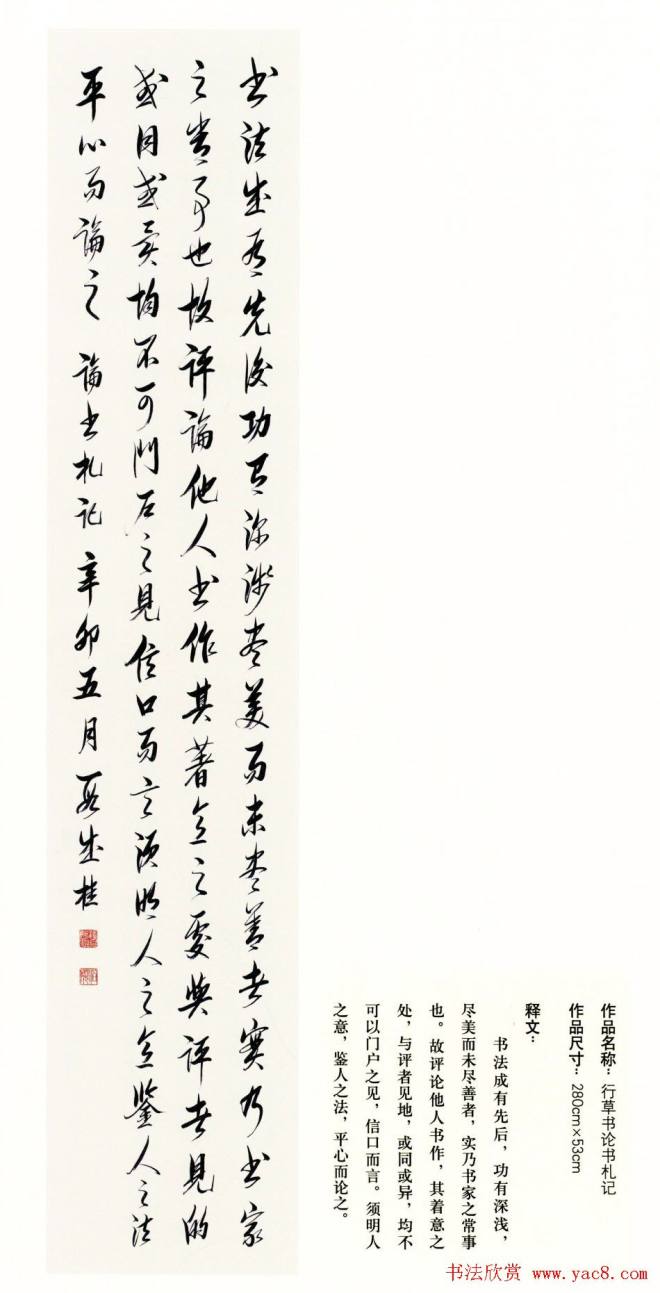 書法成有先後功有深淺尽美而未尽善者實乃書家
之常事也故評論他人書作其著意之處與評者見的
或同或異均不可門户之見信口而言須明人之意鑒人之法
平心而論之 論書札記 辛卯五月 段成桂
作品名称：行草书论书札记
作品尺寸：280cm×53cm
释文：
书法成有先后，功有深浅，
尽美而未尽善者，实乃书家之常事
也。故评论他人书作，其着意之
处，与评者见地，或同或异，均不
可以门户之见，信口而言。须明人
之意，鉴人之法，平心而论之。
书法欣赏 www.yac8.com